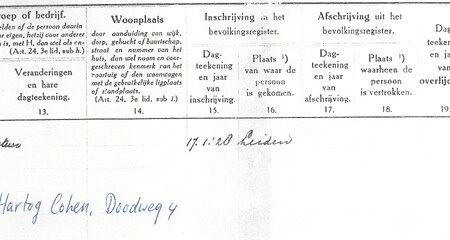 roep of bedrijf.
elden of de persoon daarin
or eigen, hetzij voor ander
n is, met H, dan wel als on-
(Art. 24, 3e lid, sub h.)
Veranderingen
en hare
dagteekening.
13.
Woonplaats
door aanduiding van wijk,
dorp, gehucht of buurtschap,
straat en nummer van het
huis, dan wel naam en voor-
geschreven kenmerk van het
vaartuig of den woonwagen
met de gebruikelijke ligplaats
of standplaats.
(Art. 24, 3e lid, sub i.)
14.
Inschrijving in het
bevolkingsregister.
Dag-
teekening
en jaar
van
inschrijving.
15.
Plaats ¹)
van waar de
persoon
is gekomen.
16.
Afschrijving uit het
bevolkingsregister.
Dag-
teekening
en jaar
van
afschrijving.
17.
Plaats ¹)
waarheen de
persoon
is vertrokken.
18.
Dag
teeke
en ja
van
overlijd
19.
17.1.'28 Leiden
Hartog Cohen, Doodweg 4